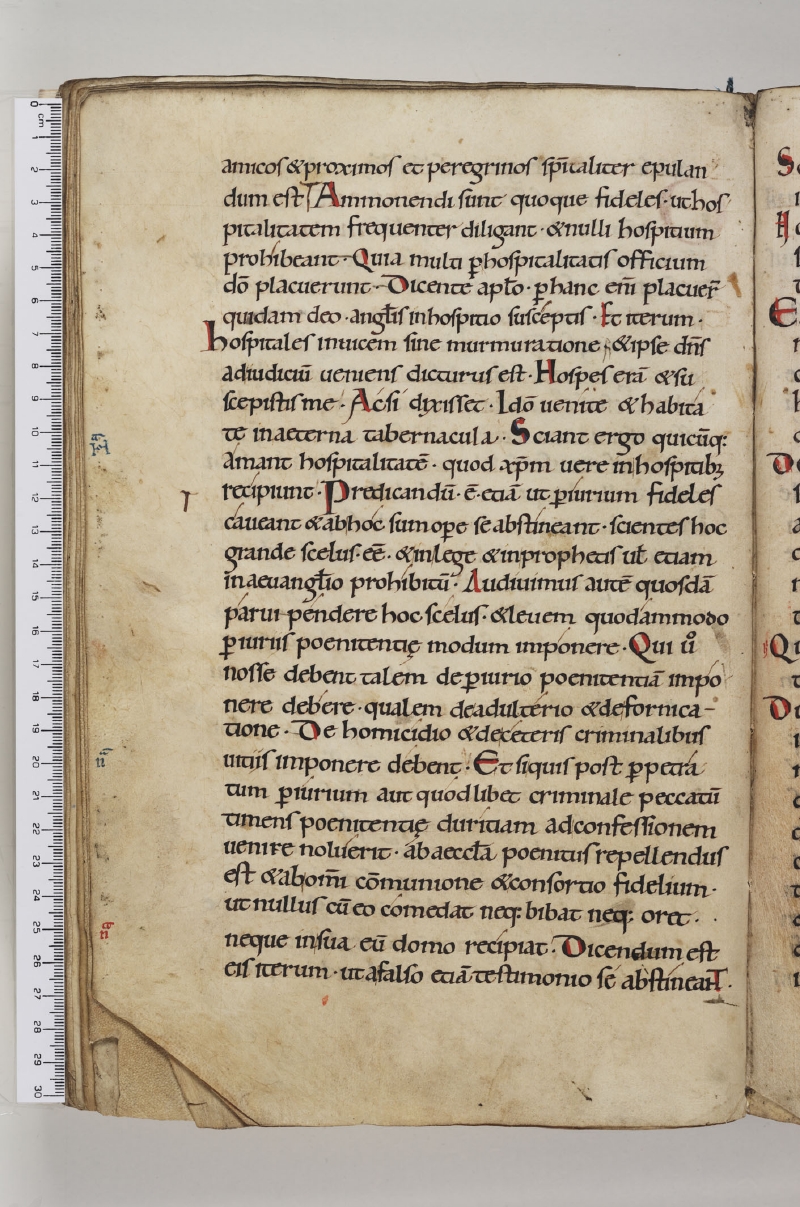 amicos &proximos et peregrinos sp̄italiter epulan
dum est Ammonendi sunt quoque fideles· ut hos
pitalitatem frequenter diligant · &nulli hospitium
prohibeant· Quia multi p̱ hospitalitatis officium
dō placuerunt· Dicente apl̄o · p̱ hanc eni̅ placuer̄
quidam deo · angl̄is in hospitio susceptis · Et iterum ·
hospitales inuicem sine murmuratione · &ipse dn̄s
adiudiciū ueniens dicturus est · Hospes erā &su
scepistis me · Acsi dixisset · Idō uenite &habita
te in aeterna tabernacula · Sciant ergo quicūq:
amant hospitalitatē · quod xp̄m uere in hospitib;
recipiunt · Predicandū · ē · etiā ut p̱iurium fideles
caueant &abhoc sum̄ope se abstineant · scientes hoc
grande scelus· eē · &inlege &inprophetis ut̄ etiam
in aeuangl̄io prohibitū · Audiuimus autē quosdā
parui pendere hoc scelus · &leuem quodammodo
p̱iuriis poenitentię modum imponere · Qui ū̊
nosse debent talem dep̱iurio poenitentiā impo
nere debere · qualem deadulterio &defornica-
tione · De homicidio &deceteris criminalibus
uitiis imponere debent · Et siquis post p̱petra
tum p̱iurium aut quodlibet criminale peccatū
timens poenitentię duritiam adconfessionem
uenire noluerit · ab aeccl̄a poenitus repellendus
est &abom̄i cōmunione &consortio fidelium ·
ut nullus cū eo comedat neq: bibat neq: oret ·
neque insua eū domo recipiat · Dicendum est
eis iterum · ut afalso etiā testimonio se abstineant ·